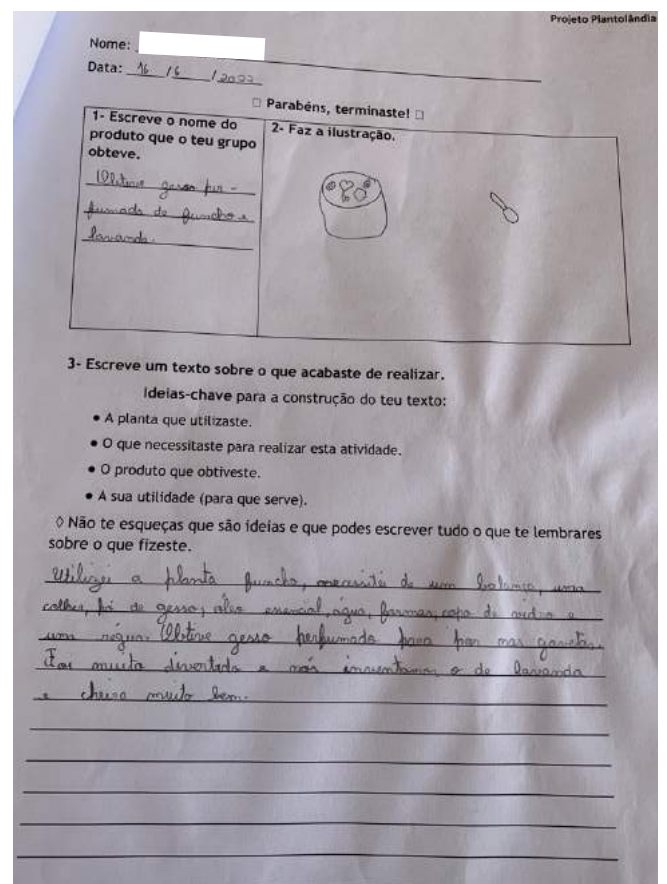 Projeto Plantolândia
Nome:
Data: 16 / 6 / 2022
□ Parabéns, terminaste! □
1- Escreve o nome do
produto que o teu grupo
obteve.
Obtive gesso per-
fumado de funcho e
lavanda.
2- Faz a ilustração.
3- Escreve um texto sobre o que acabaste de realizar.
Ideias-chave para a construção do teu texto:
• A planta que utilizaste.
• O que necessitaste para realizar esta atividade.
• O produto que obtiveste.
• A sua utilidade (para que serve).
◊ Não te esqueças que são ideias e que podes escrever tudo o que te lembrares
sobre o que fizeste.
Utilizei a planta funcho, necessitei de um balança, uma
colher, pó de gesso, óleo essencial, água, formas, copo de vidro e
uma régua. Obtive gesso perfumado para por nas gavetas.
Foi muito divertido e nós inventamos o de lavanda
e cheira muito bem.